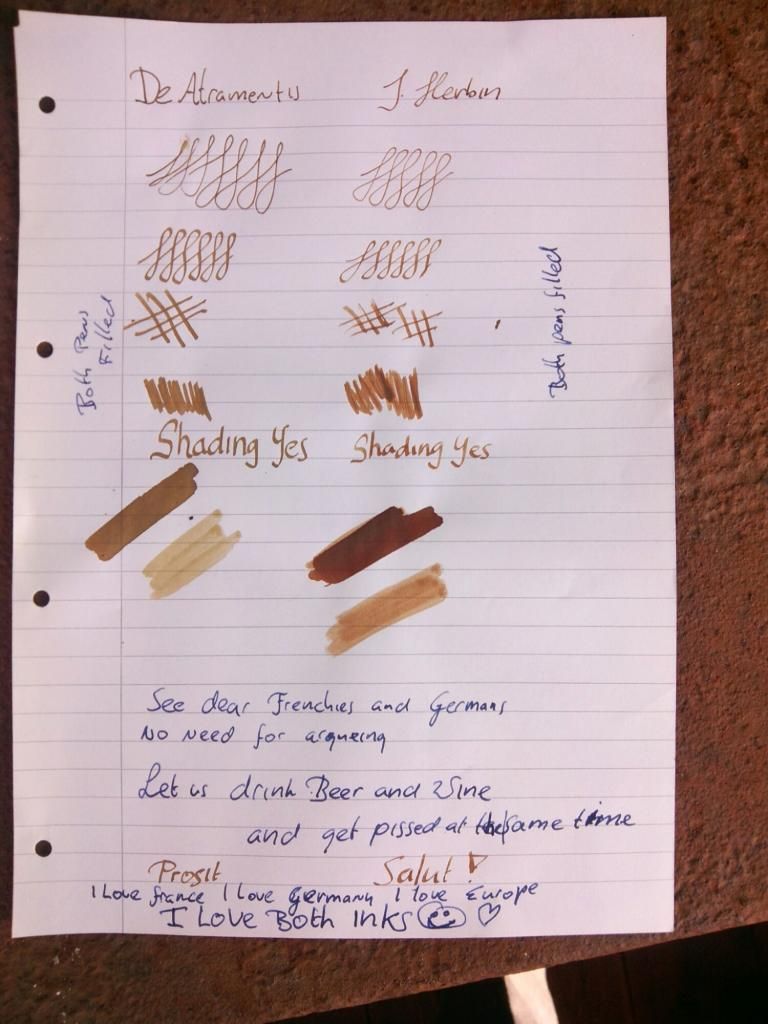 De Atramentis J. Herbin
Both Pens
Filled
Both pens filled
Shading Yes Shading Yes
See dear Frenchies and Germans
No Need for argueing
Let us drink Beer and Wine
and get pissed at the same time
Prosit Salut!
I Love france I Love Germany I love Europe
I Love Both Inks